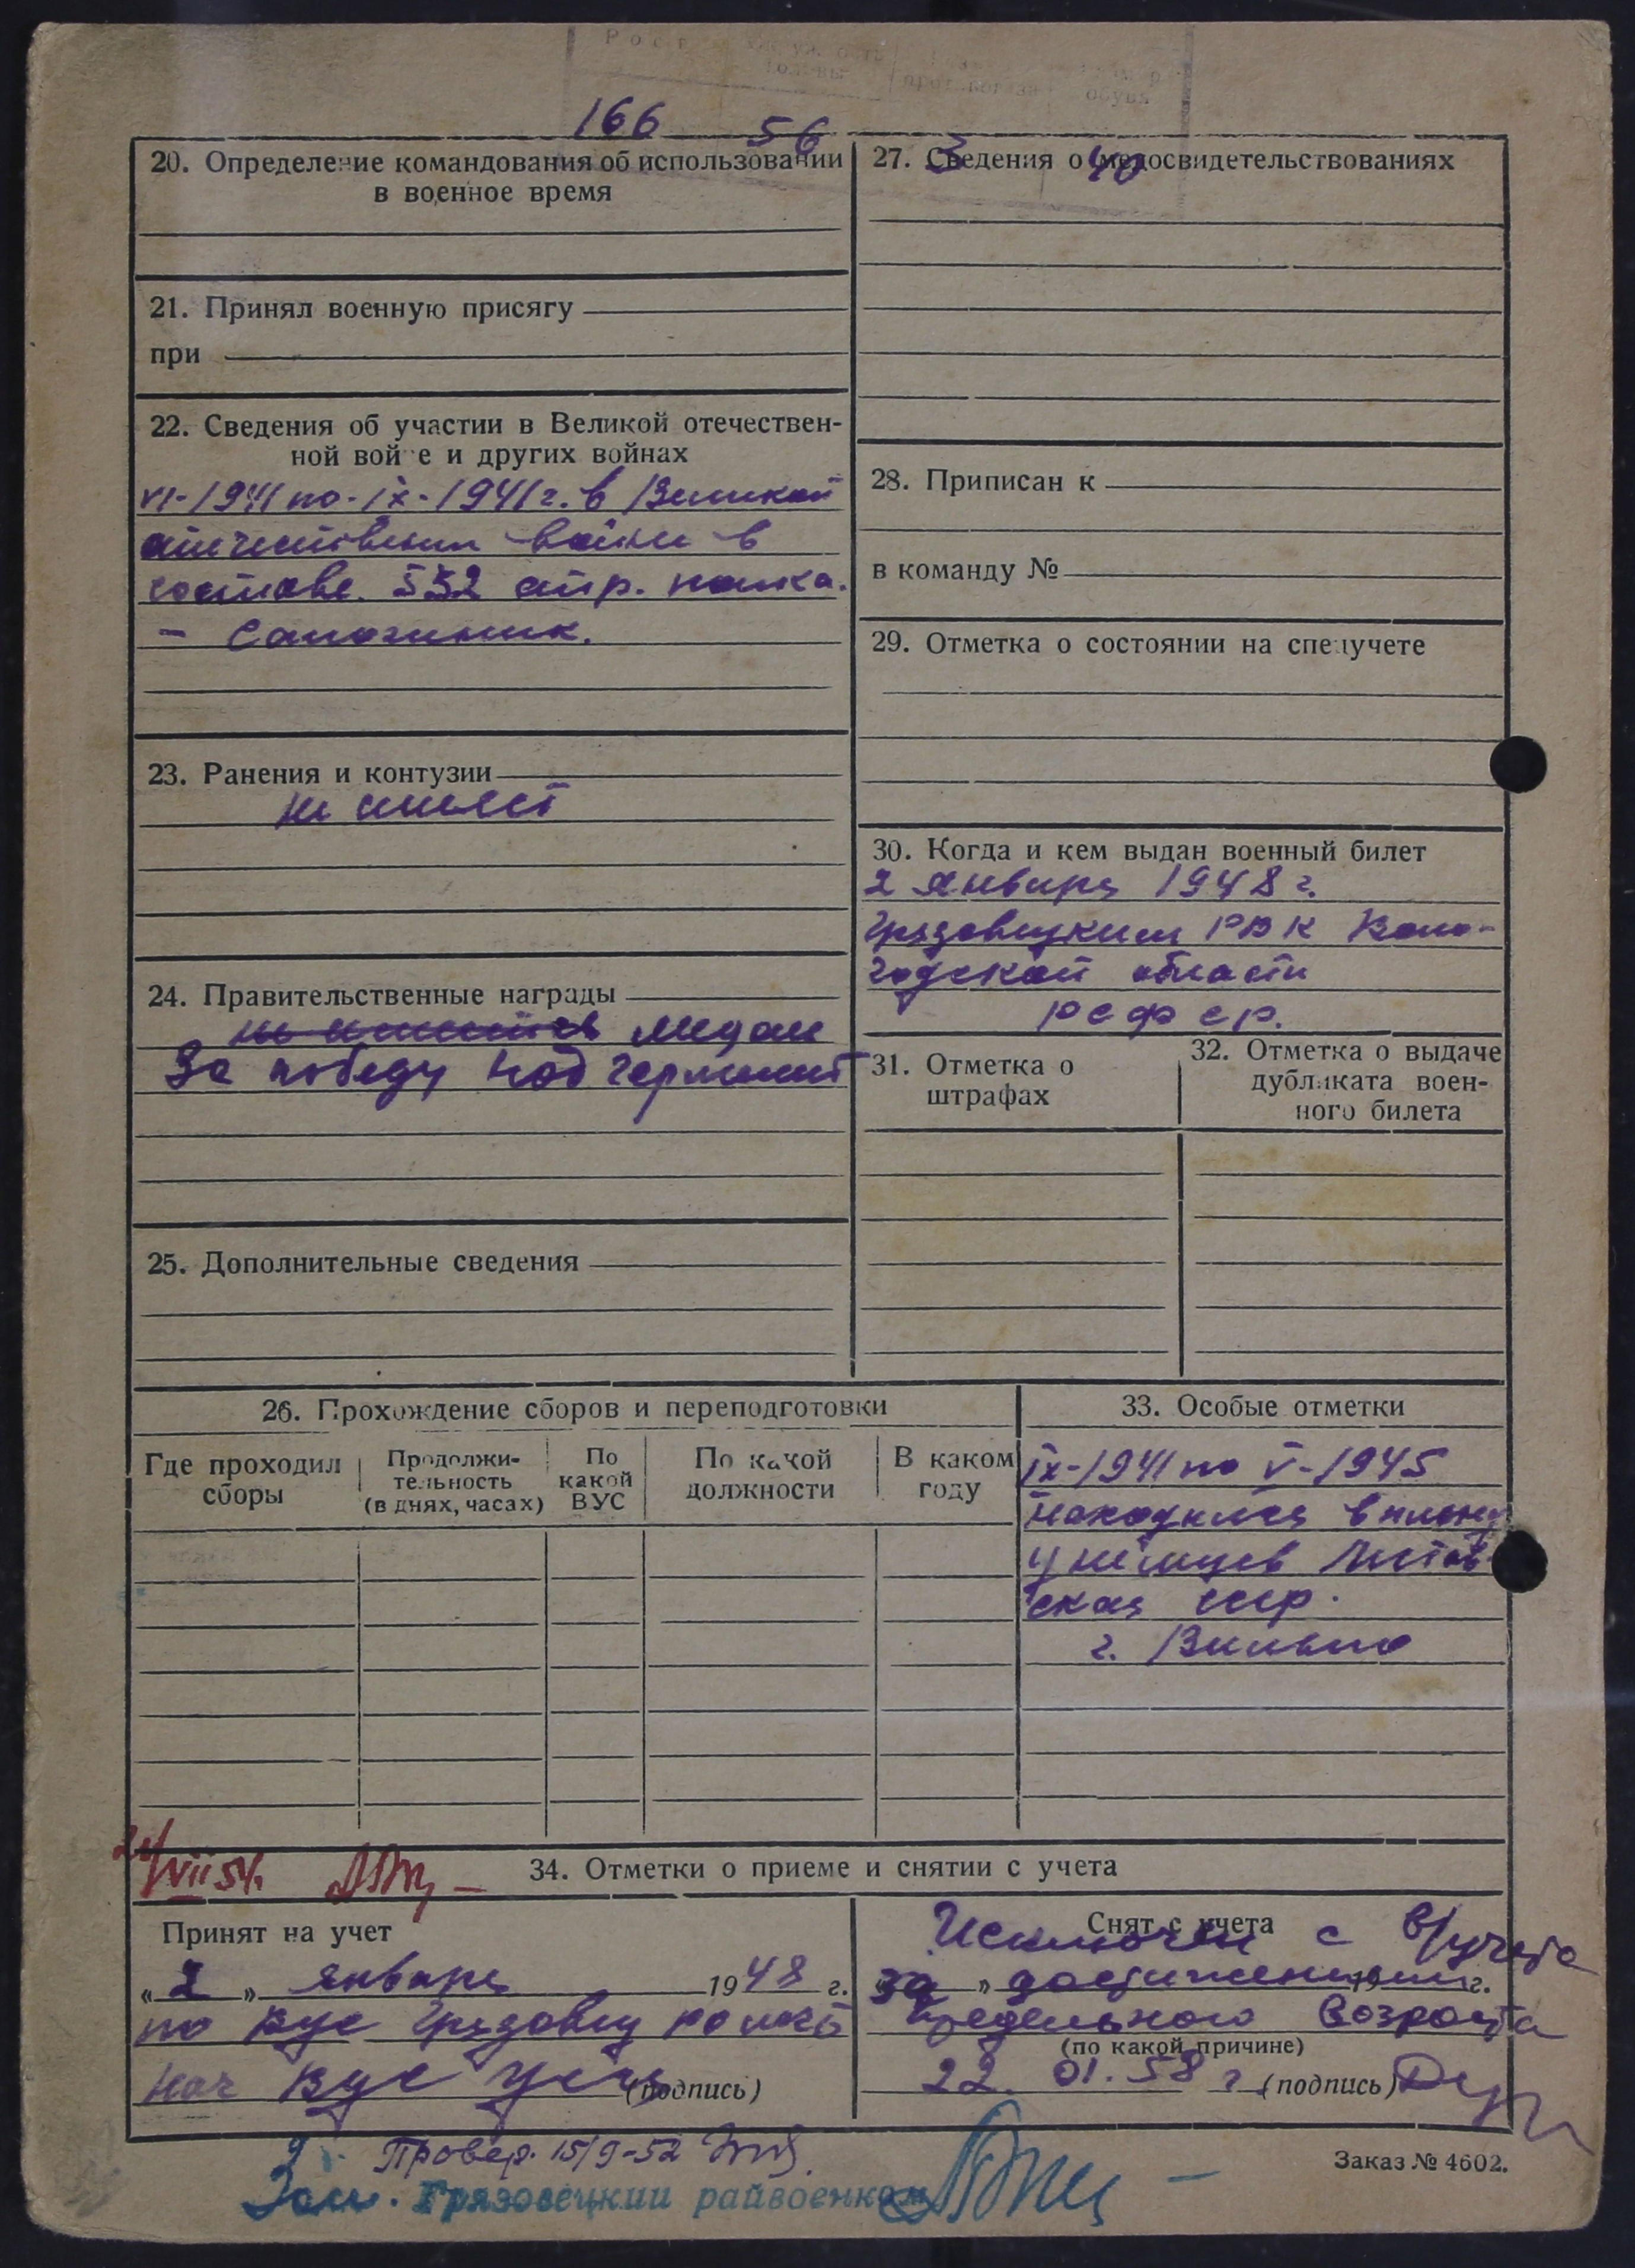 Рост
166 56 3 40
20. Определение командования об использовании
в военное время
21. Принял военную присягу
при
22. Сведения об участии в Великой отечествен-
ной войне и других войнах
VI-1941 по-IX-1941 г. в Великой
отечественн войне в
составе 552 стр. полка.
- Сапожник.
23. Ранения и контузии
не имеет
24. Правительственные награды
медаль
За победу над Германией
25. Дополнительные сведения
27. Сведения о медосвидетельствованиях
28. Приписан к
в команду №
29. Отметка о состоянии на спецучете
30. Когда и кем выдан военный билет
2 января 1948 г.
Грязовецким РВК Воло-
годской области
РСФСР.
31. Отметка о
штрафах
32. Отметка о выдаче
дубликата воен-
ного билета
26. Прохождение сборов и переподготовки
Где проходил
сборы
Продолжи-
тельность
(в днях, часах)
По
какой
ВУС
По какой
должности
В каком
году
33. Особые отметки
IX-1941 по V-1945
находился в плену
у немцев Литов-
ская ССР.
г. Вильно
VII 54.
34. Отметки о приеме и снятии с учета
Принят на учет
„2" января 1948 г.
по ВУС
нач ВУС (подпись)
Снят с учета
Исключен с в/учета
за достижением 19 г.
предельного возраста
(по какой причине)
22. 01. 58 г. (подпись)
Провер. 15/9-52
Заказ № 4602.
Зам. Грязовецкий райвоенком